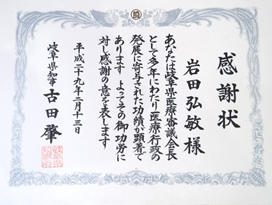 感謝状
岩田弘敏様
あなたは岐阜県医療審議会長
として多年にわたり医療行政の
発展に寄与された功績が顕著で
あります よってその御功労に
対し感謝の意を表します
平成二十九年二月十三日
岐阜県知事 古田肇